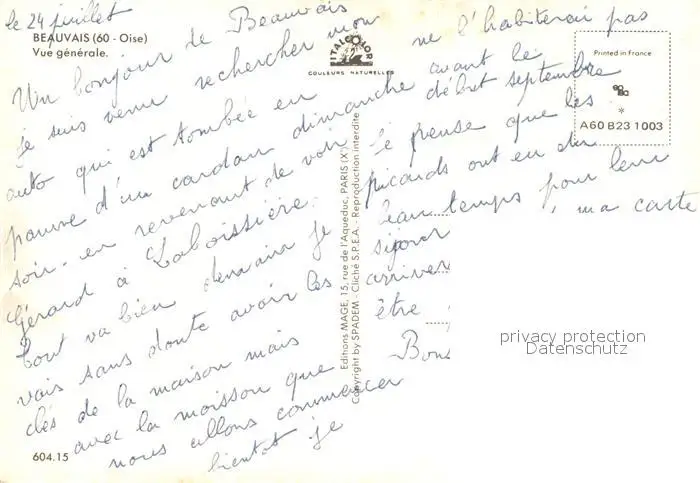 le 24 juillet
BEAUVAIS (60 - Oise)
Vue générale.
Un bonjour de Beauvais
je suis venu rechercher mon
auto qui est tombée en
panne d'un cardan dimanche
soir en revenant de voir
Gérard à Laboissière.
tout va bien demain je
vais sans doute avoir les
clés de la maison mais
avec la moisson que
nous allons commencer
bientot je
604.15
ITALCOLOR
COULEURS NATURELLES
Editions MAGE, 15, rue de l'Aqueduc, PARIS (X°)
Copyright by SPADEM - Cliché S.P.E.A. - Reproduction interdite
ne l'habiterai pas
avant le
début septembre
Je pense que les
picards ont eu du
beau temps pour leur
séjour , ma carte
arriver
être
Bon
Printed in France
*
A60 B23 1003
privacy protection
Datenschutz